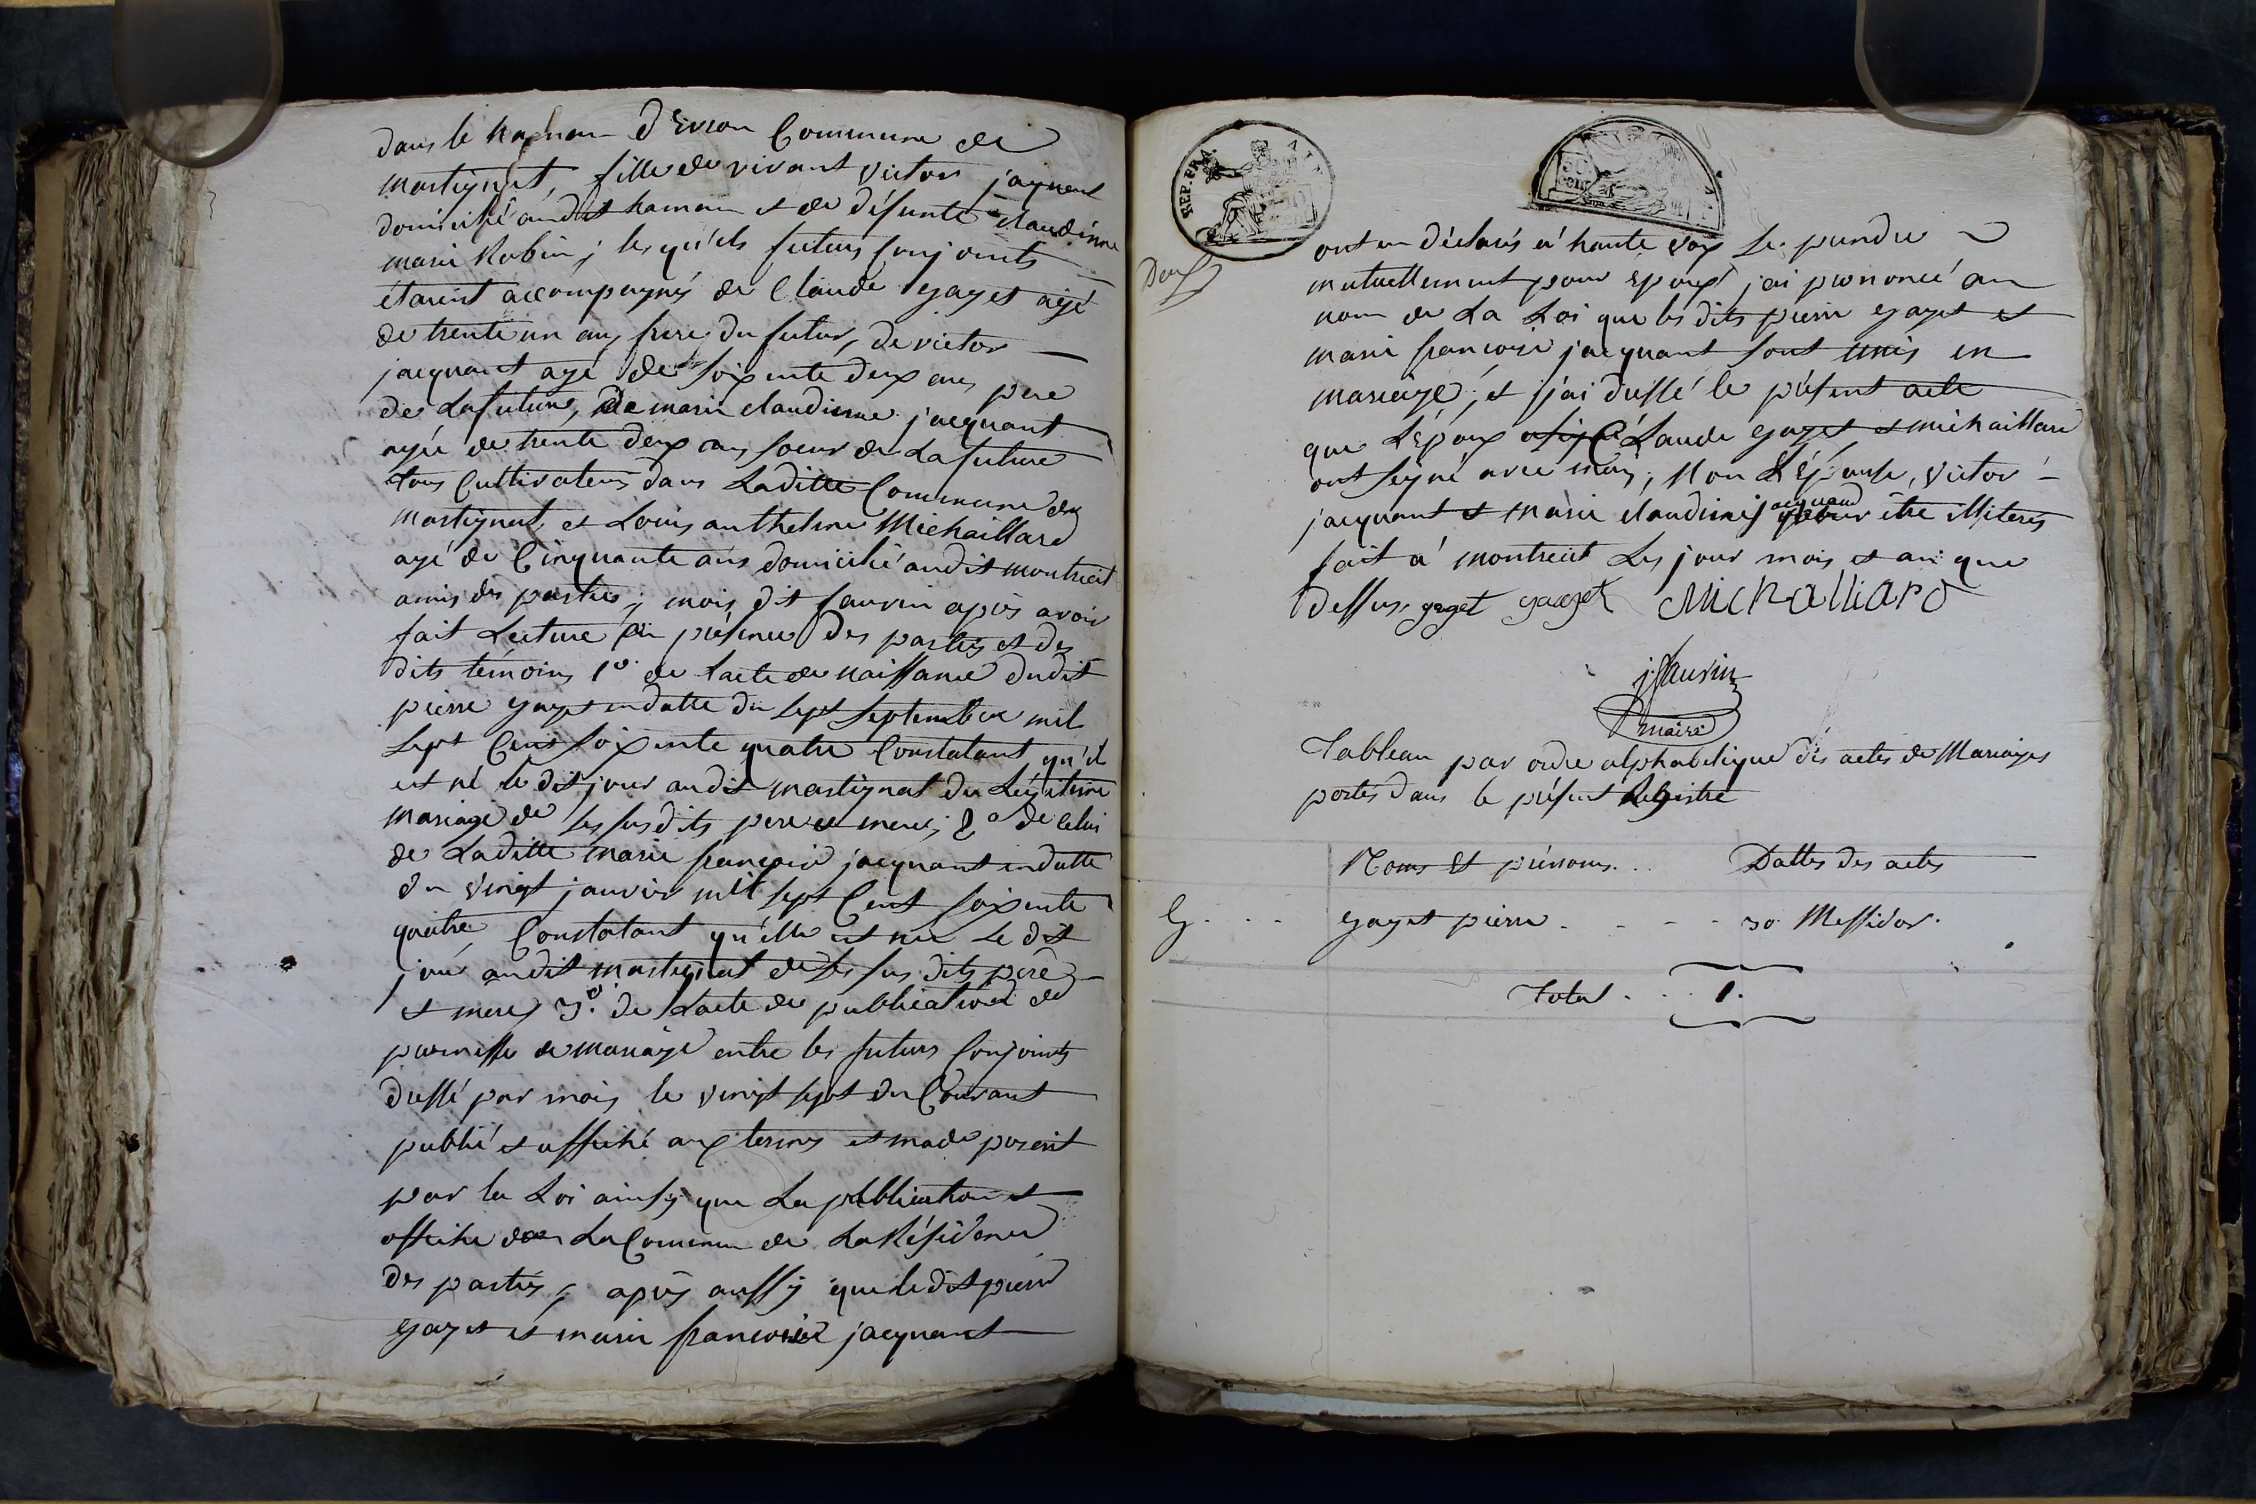 dans le hamau d'Evron Commune de
martignat, fille de vivant victor jaquant
domicilié audit hamau et de défunte claudinne
marie Robin, les qu'els futurs Conjoints
étaient accompagnés de Claude gayet agé
de trente un ans frere du futur, de victor
jacquant agé de soixente deux ans pere
de La future, de marie claudinne jacquant
agée de trente deux ans soeur de La future
tous Cultivateurs dans Laditte Commune de
martignat, et Louis anthelme Michaillard
agé de Cinquante ans domicilié audit montreat
amis des parties; mois dit saurin après avoir
fait Lecture en présence des parties et des
dits témoins 1º de L'acte de naissance dudit
pierre gayet en datte du sept septembre mil
sept Cent soixente quatre Constatant qu'il
est né le dit jour audit martignat du Légitime
mariage de ses susdits pere et mere; 2º de celui
de Laditte marie françoise jacquant en datte
du vingt janvier mil sept Cent soixente
quatre Constatant qu'elle est née Le dit
jour audit martignat de ses sus dits père
et mere, 3º de L'acte de publication de
promesse de mariage entre les futurs Conjoints
dressé par mois le vingt sept du Courant
publié et affiché aux termes et mode prescrit
par la Loi ainsy que La publication et
affiche dans La Commune de La Résidence
des parties; après aussy que le dit pierre
gayet et marie françoise jacquant
REP. FRA.
Deux
ont en déclaré à haute voix se prendre
mutuellement pour époux j'ai prononcé au
nom de La Loi que les dits pierre gayet et
marie françoise jacquant sont unis en
mariage; et j'ai dressé le présent acte
que L'époux Claude gayet et michaillard
ont signé avec mois, Non L'épouse, victor
jacquant et marie claudine jacquand pour être illiterés
fait à montreat Les jour mois et an que
dessus. gayet gayet Michalliard
j Saurin
maire
Tableau par ordre alphabetique des actes de Mariages
portés dans le présent Registre
Noms Et prénoms. . . Dattes des actes
G. . . . gayet pierre . . . . 30 Messidor.
Total . . . 1.